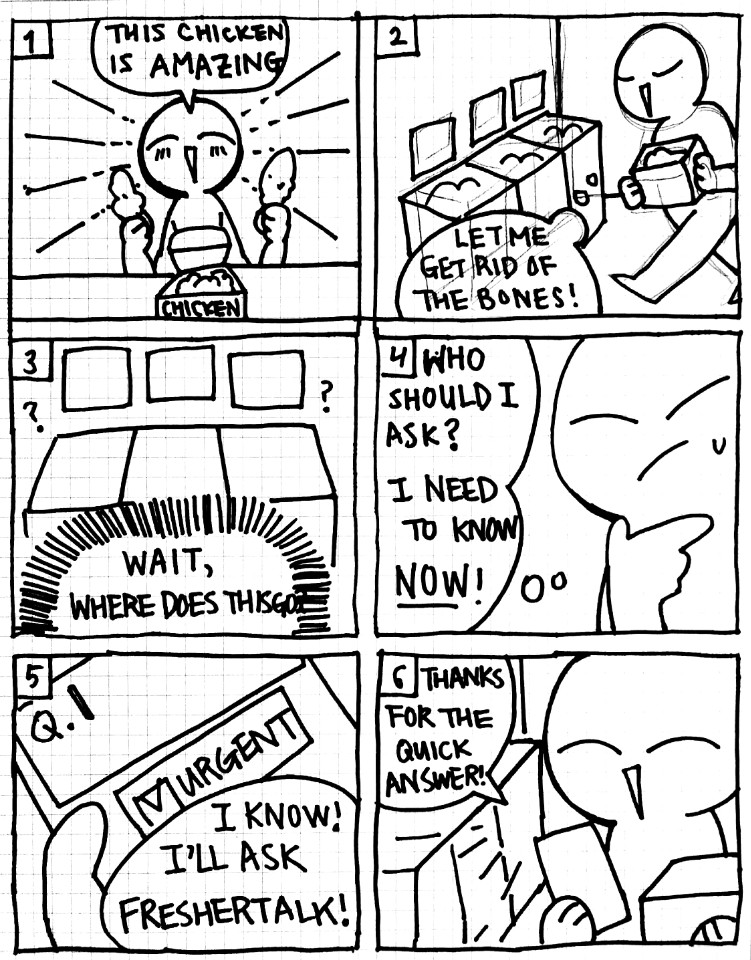 1
THIS CHICKEN
IS AMAZING
CHICKEN
2
LET ME
GET RID OF
THE BONES!
3
?
?
WAIT,
WHERE DOES THIS GO?
4
WHO
SHOULD I
ASK?
I NEED
TO KNOW
NOW!
5
Q.1
URGENT
I KNOW!
I'LL ASK
FRESHERTALK!
6
THANKS
FOR THE
QUICK
ANSWER!